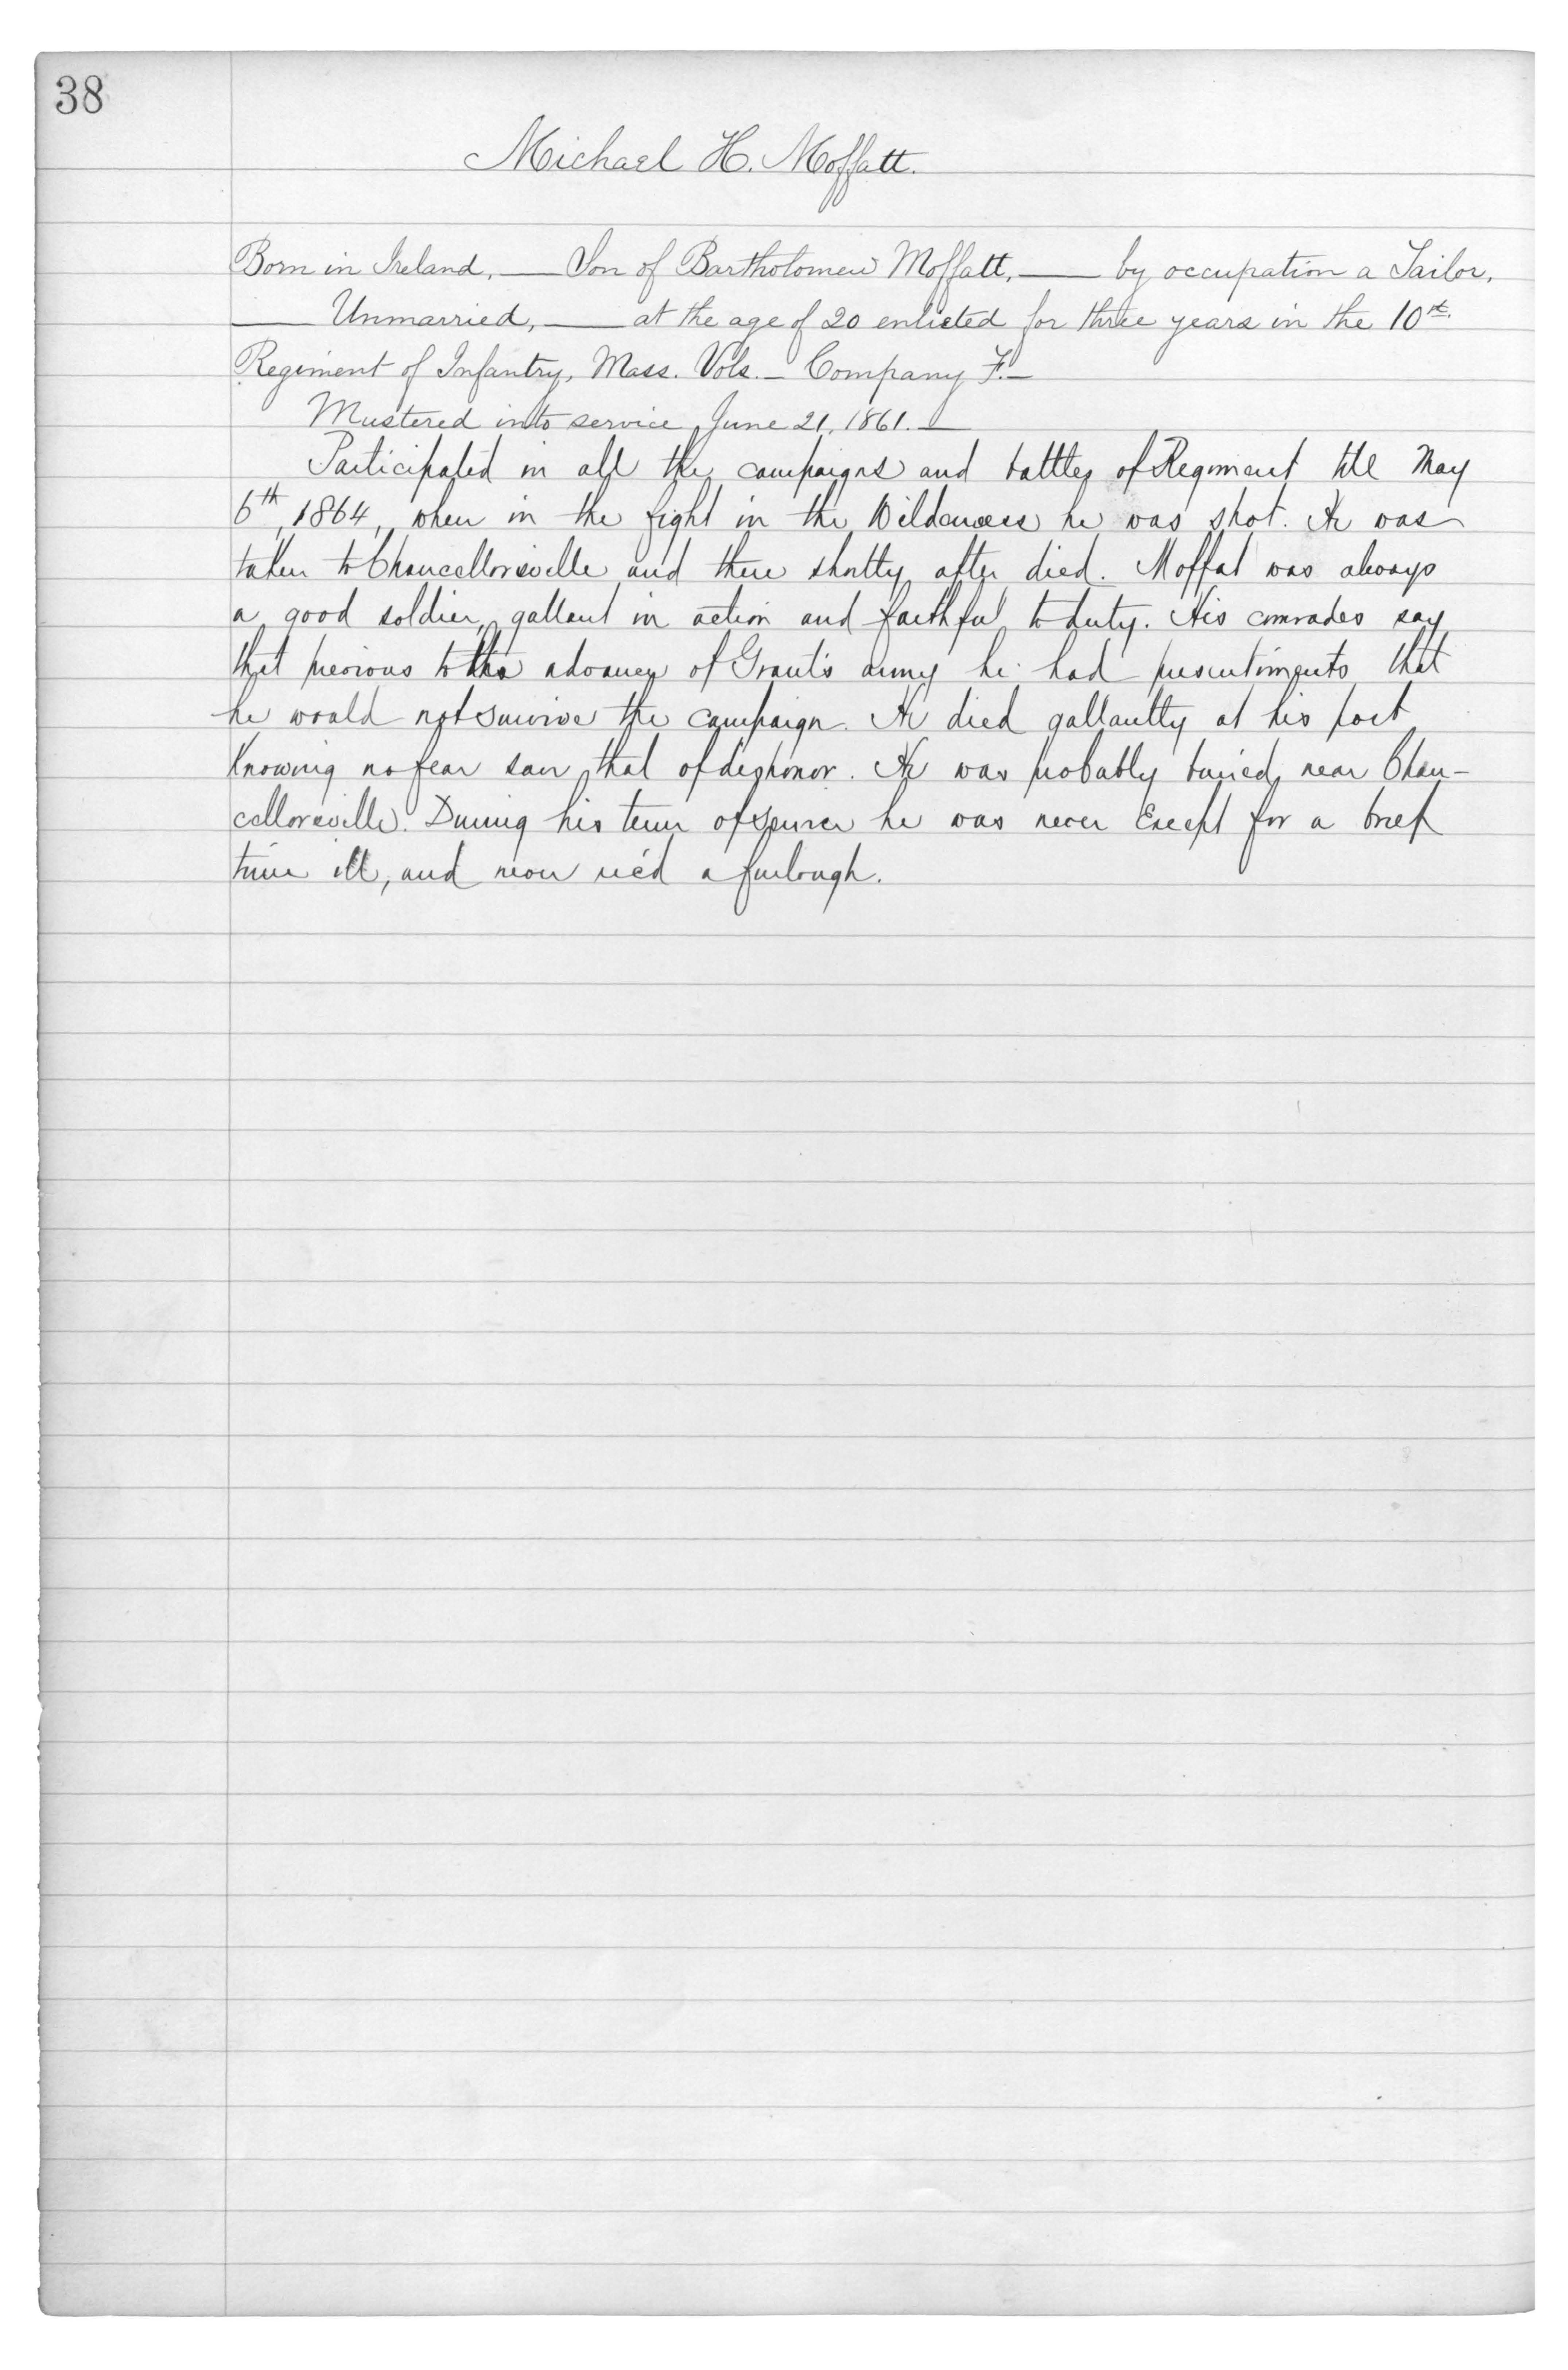 38
Michael H. Moffatt.
Born in Ireland, — Son of Bartholomew Moffatt, — by occupation a Tailor,
— Unmarried, — at the age of 20 enlisted for three years in the 10th
Regiment of Infantry, Mass. Vols. — Company F. —
Mustered into service June 21, 1861. —
Participated in all the campaigns and battles of Regiment till May
6th, 1864, when in the fight in the Wilderness he was shot. He was
taken to Chancellorsville and there shortly after died. Moffat was always
a good soldier, gallant in action and faithful to duty. His comrades say
that previous to the advance of Grant's army he had presentiments that
he would not survive the campaign. He died gallantly at his post
knowing no fear save that of dishonor. He was probably buried near Chan-
cellorsville. During his term of service he was never except for a brief
time ill, and never rec'd a furlough.